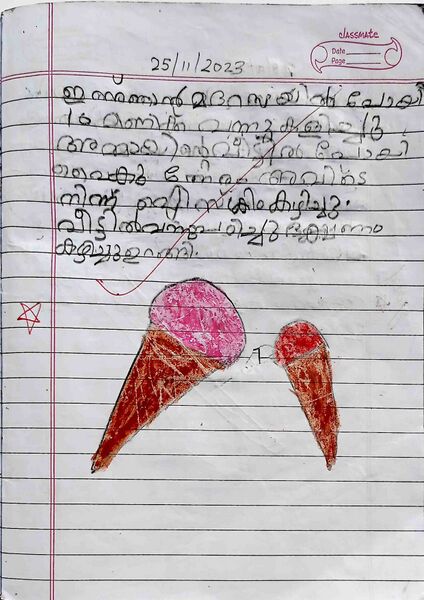 classmate
Date
Page
25/11/2023
ഇന്ന് ഞാൻ മദ്റസയിൽ പോയി
10 മണിക്ക് വന്നു കളിച്ചു
അമ്മായിന്റെ വീട്ടിൽ പോയി
വൈകു ന്നേരം അവിടെ
നിന്ന് ഐസ്ക്രീം കഴിച്ചു.
വീട്ടിൽ വന്നു പഠിച്ചു ഭക്ഷണം
കഴിച്ചു ഉറങ്ങി.